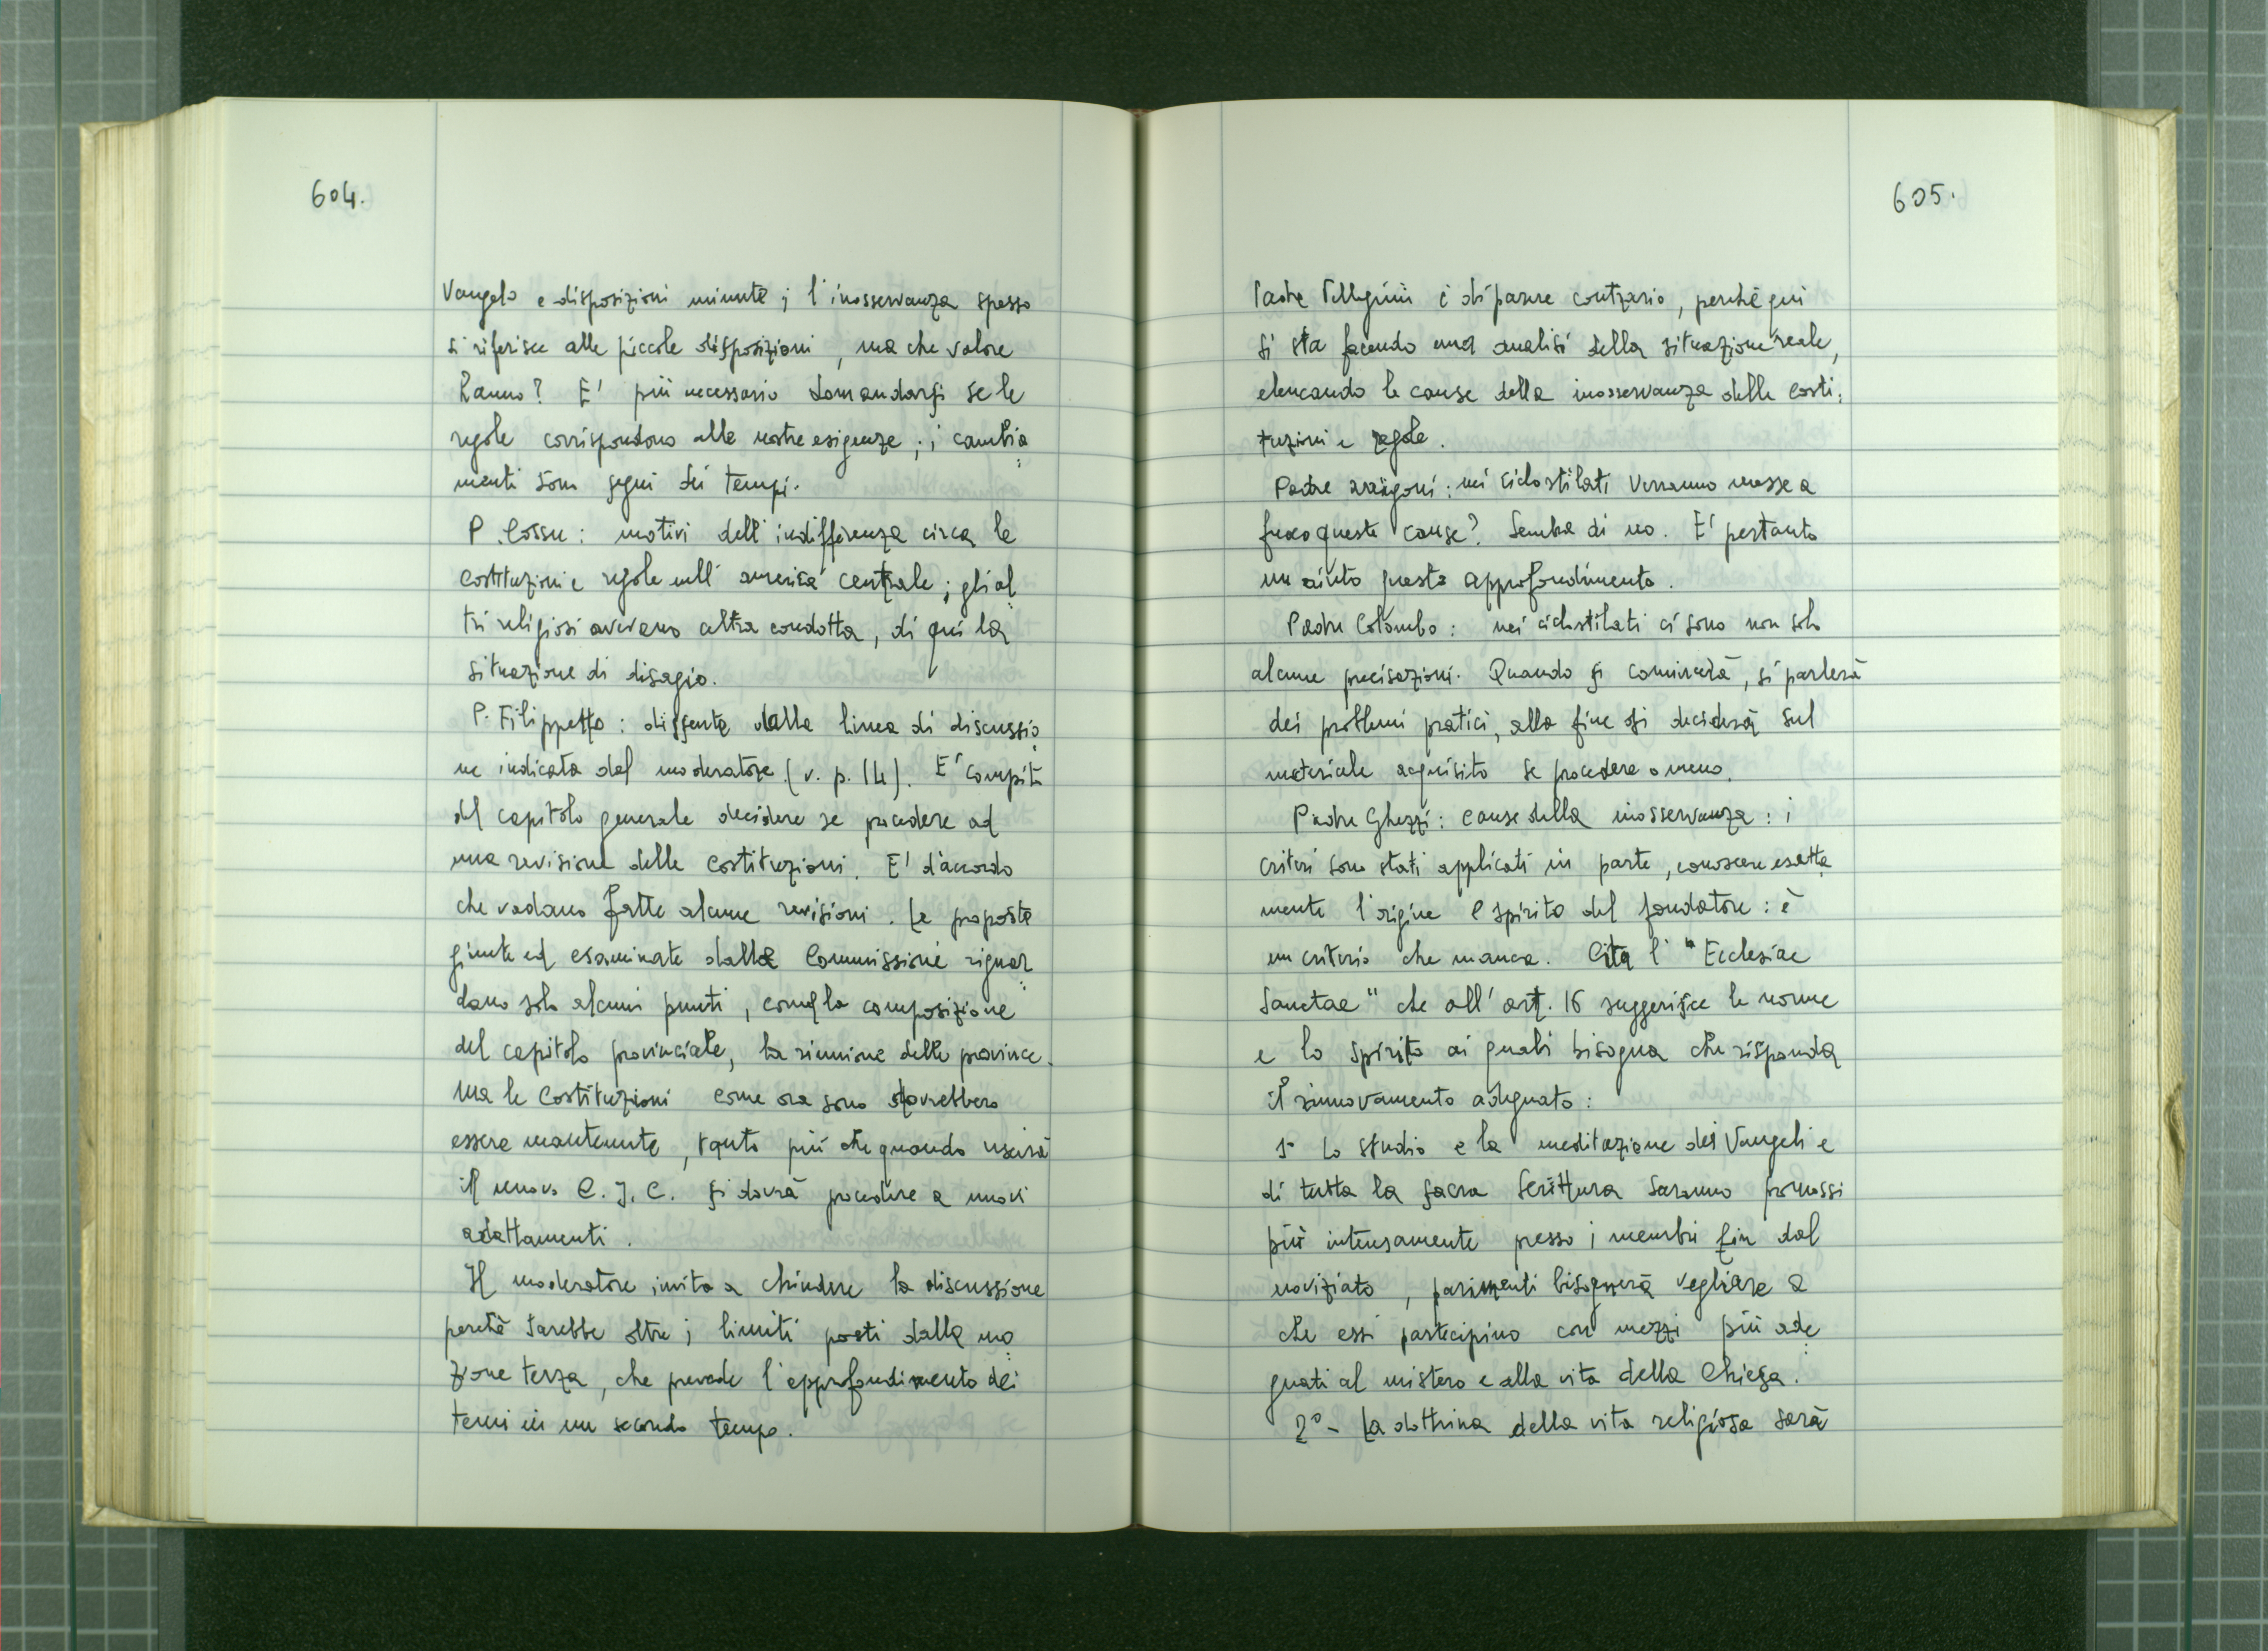 604.
Vangelo e disposizioni minute; l'inosservanza spesso
si riferisce alle piccole disposizioni, ma che valore
hanno? E' più necessario domandarsi se le
regole corrispondono alle nostre esigenze; i cambia=
menti sono segni dei tempi.
P. Cossu: motivi dell'indifferenza circa le
costituzioni e regole nell'america centrale; gli al=
tri religiosi avevano altra condotta, di qui la
situazione di disagio.
P. Filippetto: dissente dalla linea di discussio=
ne indicata dal moderatore (v. p. 14). E' compito
del capitolo generale decidere se procedere ad
una revisione delle Costituzioni. E' d'accordo
che vadano fatte alcune revisioni. Le proposte
giunte ed esaminate dalle Commissioni riguar=
dano solo alcuni punti, come la composizione
del capitolo provinciale, la riunione delle province.
Ma le Costituzioni come ora sono dovrebbero
essere mantenute, tanto più che quando uscirà
il nuovo C.J.C. si dovrà procedere a nuovi
adattamenti.
Il moderatore invita a chiudere la discussione
perchè sarebbe oltre i limiti posti dalla mo=
zione terza, che prevede l'approfondimento dei
temi in un secondo tempo.
605.
Padre Pellegrini è di parere contrario, perchè qui
si sta facendo una analisi della situazione reale,
elencando le cause della inosservanza delle costi=
tuzioni e regole.
Padre arrigoni: nei ciclostilati verranno messe a
fuoco queste cause? Sembra di no. E' pertanto
un aiuto questo approfondimento.
Padre Colombo: nei ciclostilati ci sono non solo
alcune precisazioni. Quando si comincerà, si parlerà
dei problemi pratici, alla fine si deciderà sul
materiale acquisito se procedere o meno.
Padre Ghezzi: cause della inosservanza: i
criteri sono stati applicati in parte, conoscere esatta=
mente l'origine e spirito del fondatore: è
un criterio che manca. Cita l'"Ecclesiae
Sanctae" che all'art. 16 suggerisce le norme
e lo spirito ai quali bisogna che risponda
il rinnovamento adeguato:
1° Lo studio e la meditazione dei Vangeli e
di tutta la sacra Scrittura saranno promossi
più intensamente presso i membri fin dal
noviziato, parimenti bisognerà vegliare a
che essi partecipino con mezzi più ade=
guati al mistero e alla vita della Chiesa.
2° - La dottrina della vita religiosa sarà